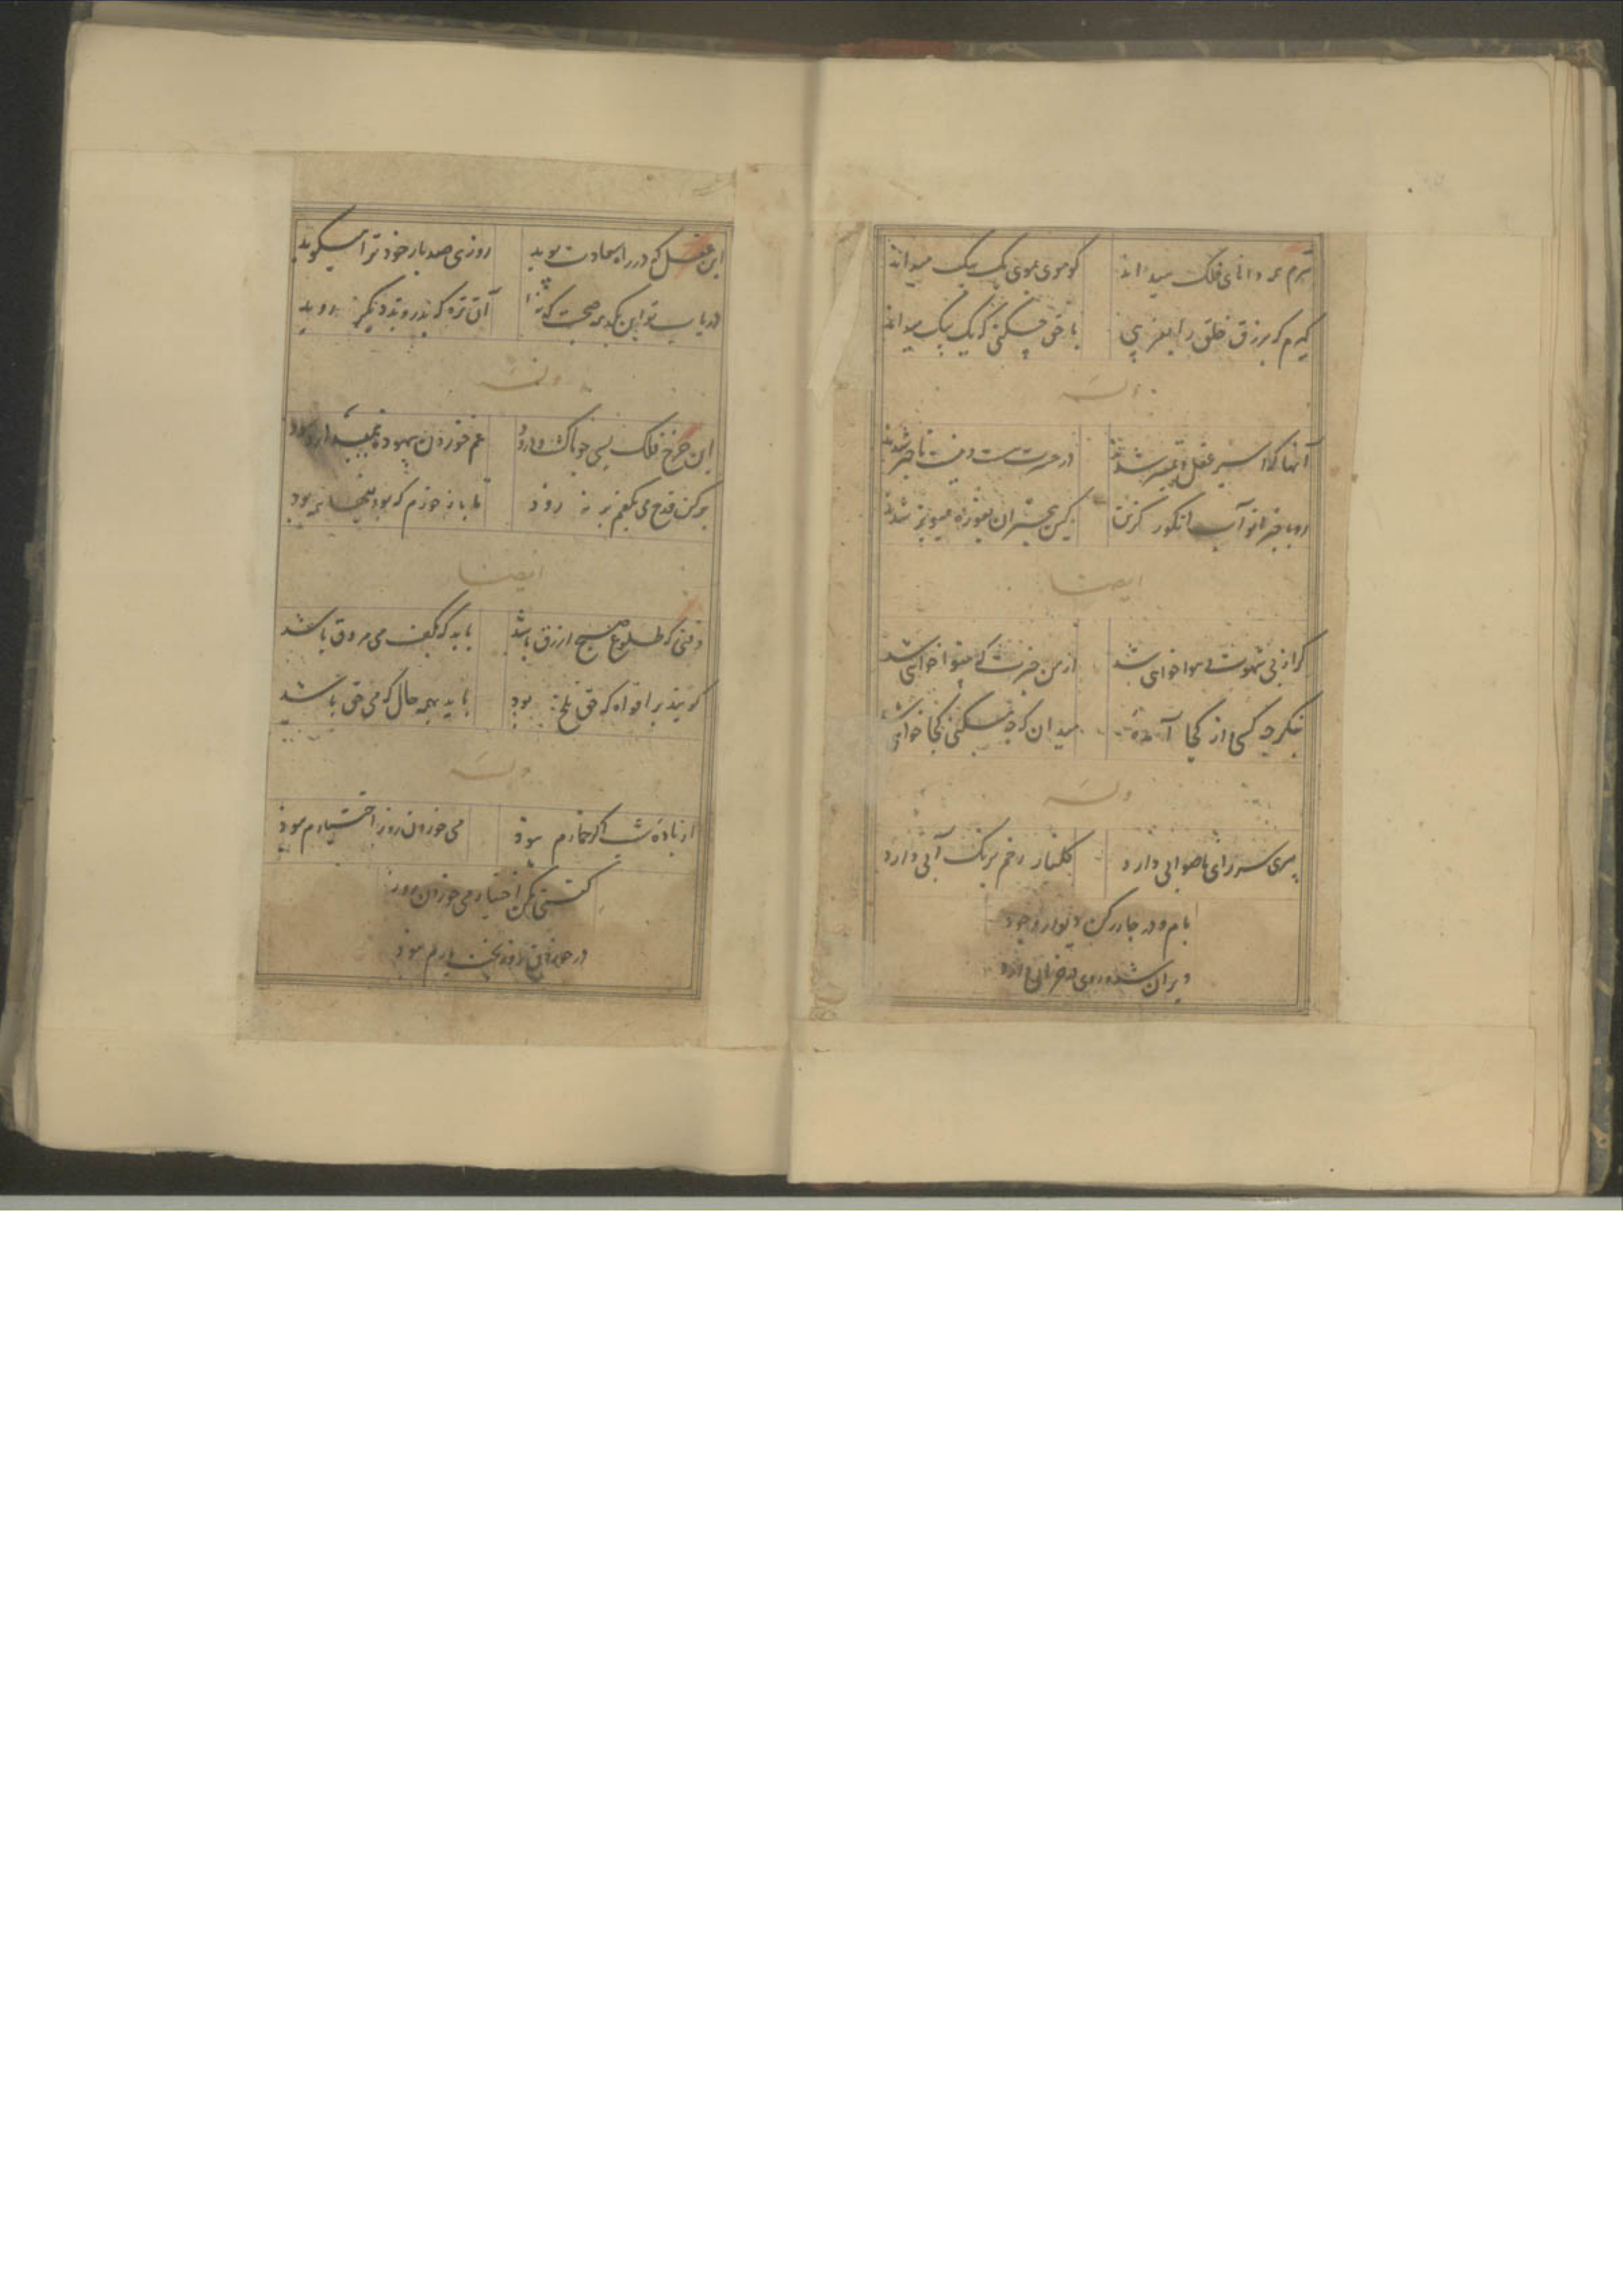 سرم همه دانای فلک میداند
کو موی بموی یک بیک میداند
گیرم که بزرق خلق را بفریبی
با حق چکنی که یک بیک میداند
وله
آنها که اسیر عقل و تمییز شدند
در حسرت هست و نیست ناچیز شدند
رو باخبرا تو آب انگور گزین
کین بیخبران بغوره میویز شدند
ایضا
گر از پی شهوت و هوا خواهی شد
از من خبرت که بینوا خواهی شد
بنگر چه کسی از کجا آمده
میدان که چه میکنی کجا خواهی شد
وله
پیری سر رای ناصوابی دارد
گلنار رخم برنگ آبی دارد
بام و در چار رکن دیوار وجود
ویران شده روی در خرابی دارد
این عقل که در راه سعادت پوید
روزی صد بار خود ترا میگوید
دریاب تو این یکدمه صحبت که نه
آن تره که بدروند و دیگر روید
وله
این چرخ فلک بسی چو ما کشت و درود
غم خوردن بیهوده نمیدارد سود
پر کن قدح می بکفم بر نه زود
تا باز خورم که بودنیها همه بود
ایضا
وقتی که طلوع صبح ازرق باشد
باید که بکف می مروق باشد
گویند بر افواه که حق تلخ بود
باید بهمه حال که می حق باشد
وله
از باده شب اگر خمارم نبود
می خوردن روز اختیارم نبود
گفتی مکن اختیار می خوردن روز